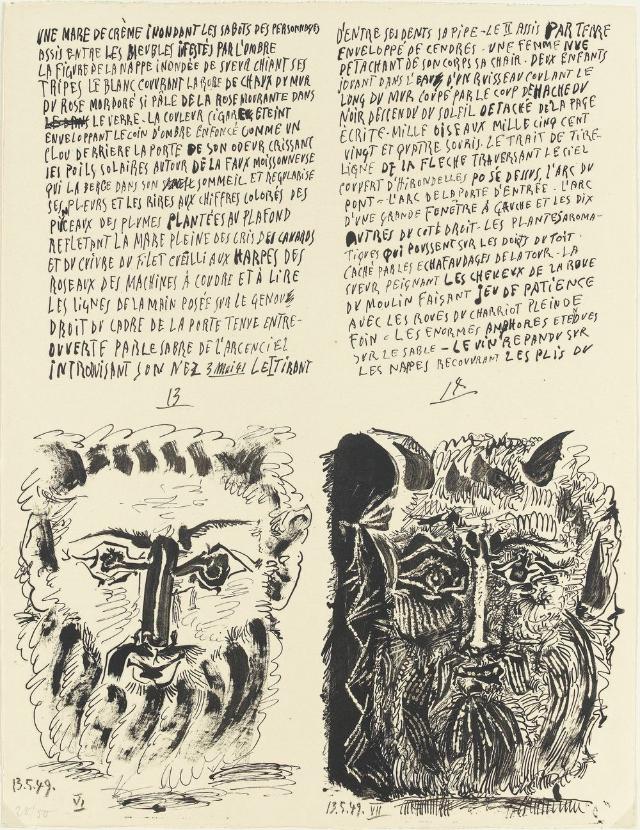 UNE MARE DE CRÈME INONDANT LES SABOTS DES PERSONNAGES
ASSIS ENTRE LES MEUBLES INFECTÉS PAR L'OMBRE
LA FIGURE DE LA NAPPE INONDÉE DE SUEUR CHIANT SES
TRIPES LE BLANC COUVRANT LA ROBE DE CHAUX DU MUR
DU ROSE MORDORÉ SI PÂLE DE LA ROSE MOURANTE DANS
LE VERRE. LA COULEUR CIGARE ÉTEINT
ENVELOPPANT LE COIN D'OMBRE ENFONCÉ COMME UN
CLOU DERRIERE LA PORTE DE SON ODEUR CRISSANT
SES POILS SOLAIRES AUTOUR DE LA FAUX MOISSONNEUSE
QUI LA BERCE DANS SON SOMMEIL ET REGULARISE
SES PLEURS ET LES RIRES AUX CHIFFRES COLORÉS DES
PUCEAUX DES PLUMES PLANTÉES AU PLAFOND
REFLETANT LA MARE PLEINE DES CRIS DES CANARDS
ET DU CUIVRE DU FILET CUEILLI AUX HARPES DES
ROSEAUX DES MACHINES À COUDRE ET À LIRE
LES LIGNES DE LA MAIN POSÉE SUR LE GENOU
DROIT DU CADRE DE LA PORTE TENUE ENTRE-
OUVERTE PAR LE SABRE DE L'ARCENCIEL
INTRODUISANT SON NEZ 3 MAI 41 LE I TIRANT
13
D'ENTRE SES DENTS SA PIPE - LE II ASSIS PAR TERRE
ENVELOPPÉ DE CENDRES - UNE FEMME NUE
DETACHANT DE SON CORPS SA CHAIR. DEUX ENFANTS
JOUANT DANS L'EAU D'UN RUISSEAU COULANT LE
LONG DU MUR COUPÉ PAR LE COUP DE HACHE DU
NOIR DESCENDU DU SOLEIL DETACHÉ DE LA PAGE
ÉCRITE - MILLE OISEAUX MILLE CINQ CENT
VINGT ET QUATRE SOURIS. LE TRAIT DE TIRE-
LIGNE DE LA FLECHE TRAVERSANT LE CIEL
COUVERT D'HIRONDELLES POSÉ DESSUS, L'ARC DU
PONT - L'ARC DE LA PORTE D'ENTRÉE. L'ARC
D'UNE GRANDE FENÊTRE À GAUCHE ET LES DIX
AUTRES DU COTÉ DROIT - LES PLANTES AROMA-
TIQUES QUI POUSSENT SUR LES DOIGTS DU TOIT.
CACHÉ PAR LES ECHAFAUDAGES DE LA TOUR - LA
SUEUR PEIGNANT LES CHEVEUX DE LA ROUE
DU MOULIN FAISANT JEU DE PATIENCE
AVEC LES ROUES DU CHARRIOT PLEIN DE
FOIN - LES ENORMES AMPHORES ETENDUES
SUR LE SABLE - LE VIN REPANDU SUR
LES NAPPES RECOUVRANT LES PLIS DU
14
13.5.49.
VI
28/50
13.5.49. VII